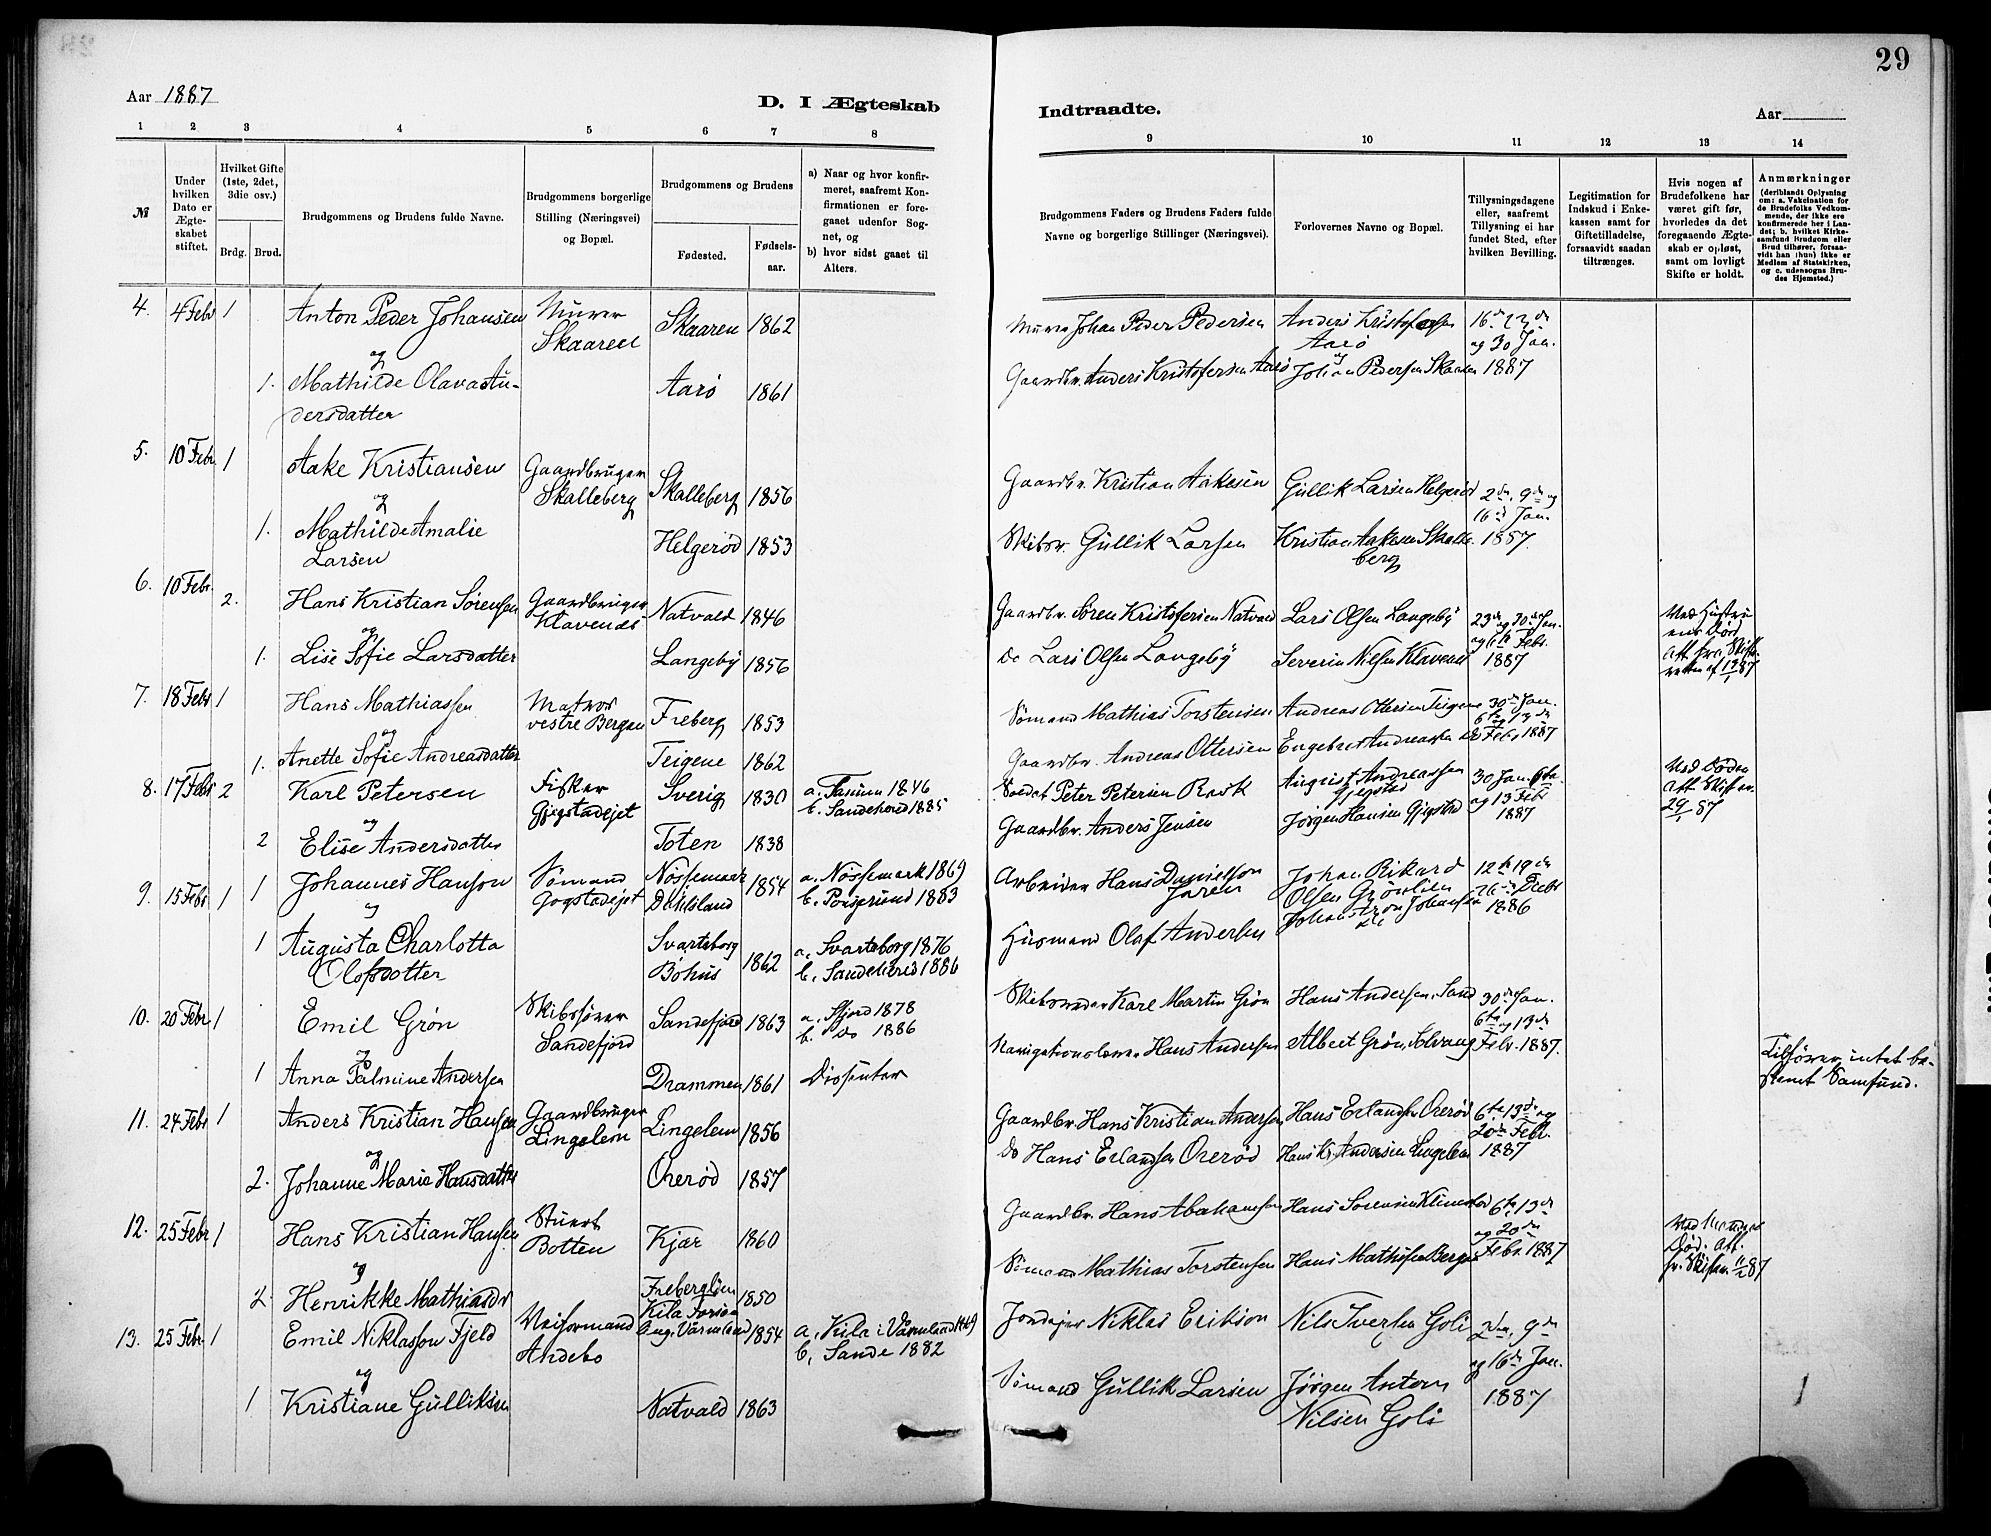 29
Aar 1887
D. I Ægteskab
Indtraadte.
Aar
1 2 3 4 5 6 7 8 9 10 11 12 13 14
№
Under hvilken Dato er Ægteskabet stiftet.
Hvilket Gifte (1ste, 2det, 3die osv.)
Brdg. Brud.
Brudgommens og Brudens fulde Navne.
Brudgommens borgerlige Stilling (Næringsvei) og Bopæl.
Brudgommens og Brudens
Fødested.
Fødsels-aar.
a) Naar og hvor konfir-
meret, saafremt Kon-
firmationen er fore-
gaaet udenfor Sog-
net, og
b) hvor sidst gaaet til
Alters.
Brudgommens Faders og Brudens Faders fulde
Navne og borgerlige Stillinger (Næringsvei).
Forlovernes Navne og Bopæl.
Tillysningsdagene
eller, saafremt
Tillysning ei har
fundet Sted, efter
hvilken Bevilling.
Legitimation for
Indskud i Enke-
kassen samt for
Giftetilladelse,
forsaavidt saadan
tiltrænges.
Hvis nogen af
Brudefolkene har
været gift før,
hvorledes da det
foregaaende Ægte-
skab er opløst,
samt om lovligt
Skifte er holdt.
Anmærkninger
(deriblandt Oplysning
om: a. Vakcination for
de Brudefolks Vedkom-
mende, der ikke ere
konfirmerede her i Lan-
det; b. hvilket Kirke-
samfund Brudgom eller
Brud tilhører, forsaa-
vidt han (hun) ikke er
Medlem af Statskirken,
og c. udensogns Bru-
des Hjemsted.)
4. 4 Febr 1 Anton Peder Johansen Murer Skaaren Skaaren 1862 Murer Johan Peder Pedersen Anders Kristofersen Aarø 16de 23de og 30 Jan.
og
1. Mathilde Olava Andersdatter Aarø 1861 Gaardbr. Anders Kristofersen Aarø Johan Pedersen Skaaren 1887
5. 10 Febr. 1 Aake Kristiansen Gaardbruger Skalleberg Skalleberg 1856 Gaardbr. Kristian Aakesen Gullik Larsen Helgerød 2den, 9de og 16de Jan.
og
1. Mathilde Amalie Larsen Helgerød 1853 Skibsr. Gullik Larsen Kristian Aakesen Skalleberg 1887.
6. 10 Febr. 2. Hans Kristian Sørensen Gaardbruger Klavenes Natvald 1846 Gaardbr. Søren Kristofersen Natvald Lars Olsen Langeby 23de og 30de Jan. og 6te Febr.
og
1. Lise Sofie Larsdatter Langeby 1856 Do Lars Olsen Langeby Severin Nilsen Klavenes 1887
7. 18 Febr 1 Hans Mathiassen Matros vestre Bergan Freberg 1853 Sømand Mathias Torstensen Andreas Ottersen Teigene 30de Jan.
og
1. Anette Sofie Andreasdatter Teigene 1862 Gaardbr. Andreas Ottersen Engebret Andreassen Febr 1887
8. 17 Febr 2 Karl Petersen Fisker Gjøgstadejet Sverig 1830 b. Sandeherred 1885 Soldat Peter Petersen Rask August Andreassen 30 Jan. 6te og 13 Febr
og
2 Elise Andersdatter Toten 1838 Gaardbr. Anders Jensen Jørgen Hansen Gjøgstad 1887
9. 15 Febr 1 1 Johannes Hanson Sømand Gogstadejet Nössemark Dahlsland 1854 a. Nössemark 1869 Arbeider Hans Danielsson Johan Rikard Olsen Grønlien 12te 19de 26de Decbr
og
1 Augusta Charlotta Olofsdotter Svarteborg Bohus 1862 a. Svarteborg 1876 b. Sandeherred 1886 Husmand Olaf Andersen 1886
10. 20 Febr 1 Emil Grøn Skibsfører Sandefjord Sandefjord 1863 a. Sfjord 1878 b. Do 1886 Skibsreder Karl Martin Grøn Hans Andersen, Sand 30de Jan. 6te og 13de
og
1 Anna Palmine Andersen Drammen 1861 Dissenter Navigationslærer Hans Andersen Albert Grøn, Solvang Febr. 1887. Tilhører intet bestemt Samfund.
11. 24 Febr 1 Anders Kristian Hansen Gaardbruger Lingelem Lingelem 1856 Gaardbr. Hans Kristian Andersen Hans Erlandsen Orerød 6te, 13de og 20de Febr.
og
2. Johanne Marie Hansdatter Orerød 1857 Do Hans Erlandsen Orerød Hans Kr. Andersen Lingelem 1887
12. 25 Febr 1 Hans Kristian Hansen Stuert Botten Kjær 1860 Gaardbr. Hans Abrahamsen Hans Sørensen 6te, 13de og 20de
og
2. Henrikke Mathiasdr 1850 Sømand Mathias Torstensen Hans Mathisen Bergan Febr. 1887
13. 25 Febr. 1 Emil Niklasson Fjeld Veiformand Andebo Kila 1854 a. Kila i Värmland b. Sande 1882 Jordejer Niklas Erikson Nils Iversen Goli 2den, 9de og 16de Jan.
og
1 Kristiane Gulliksen Natvald 1863 Sømand Gullik Larsen Jørgen Antern Nilsen Goli 1887